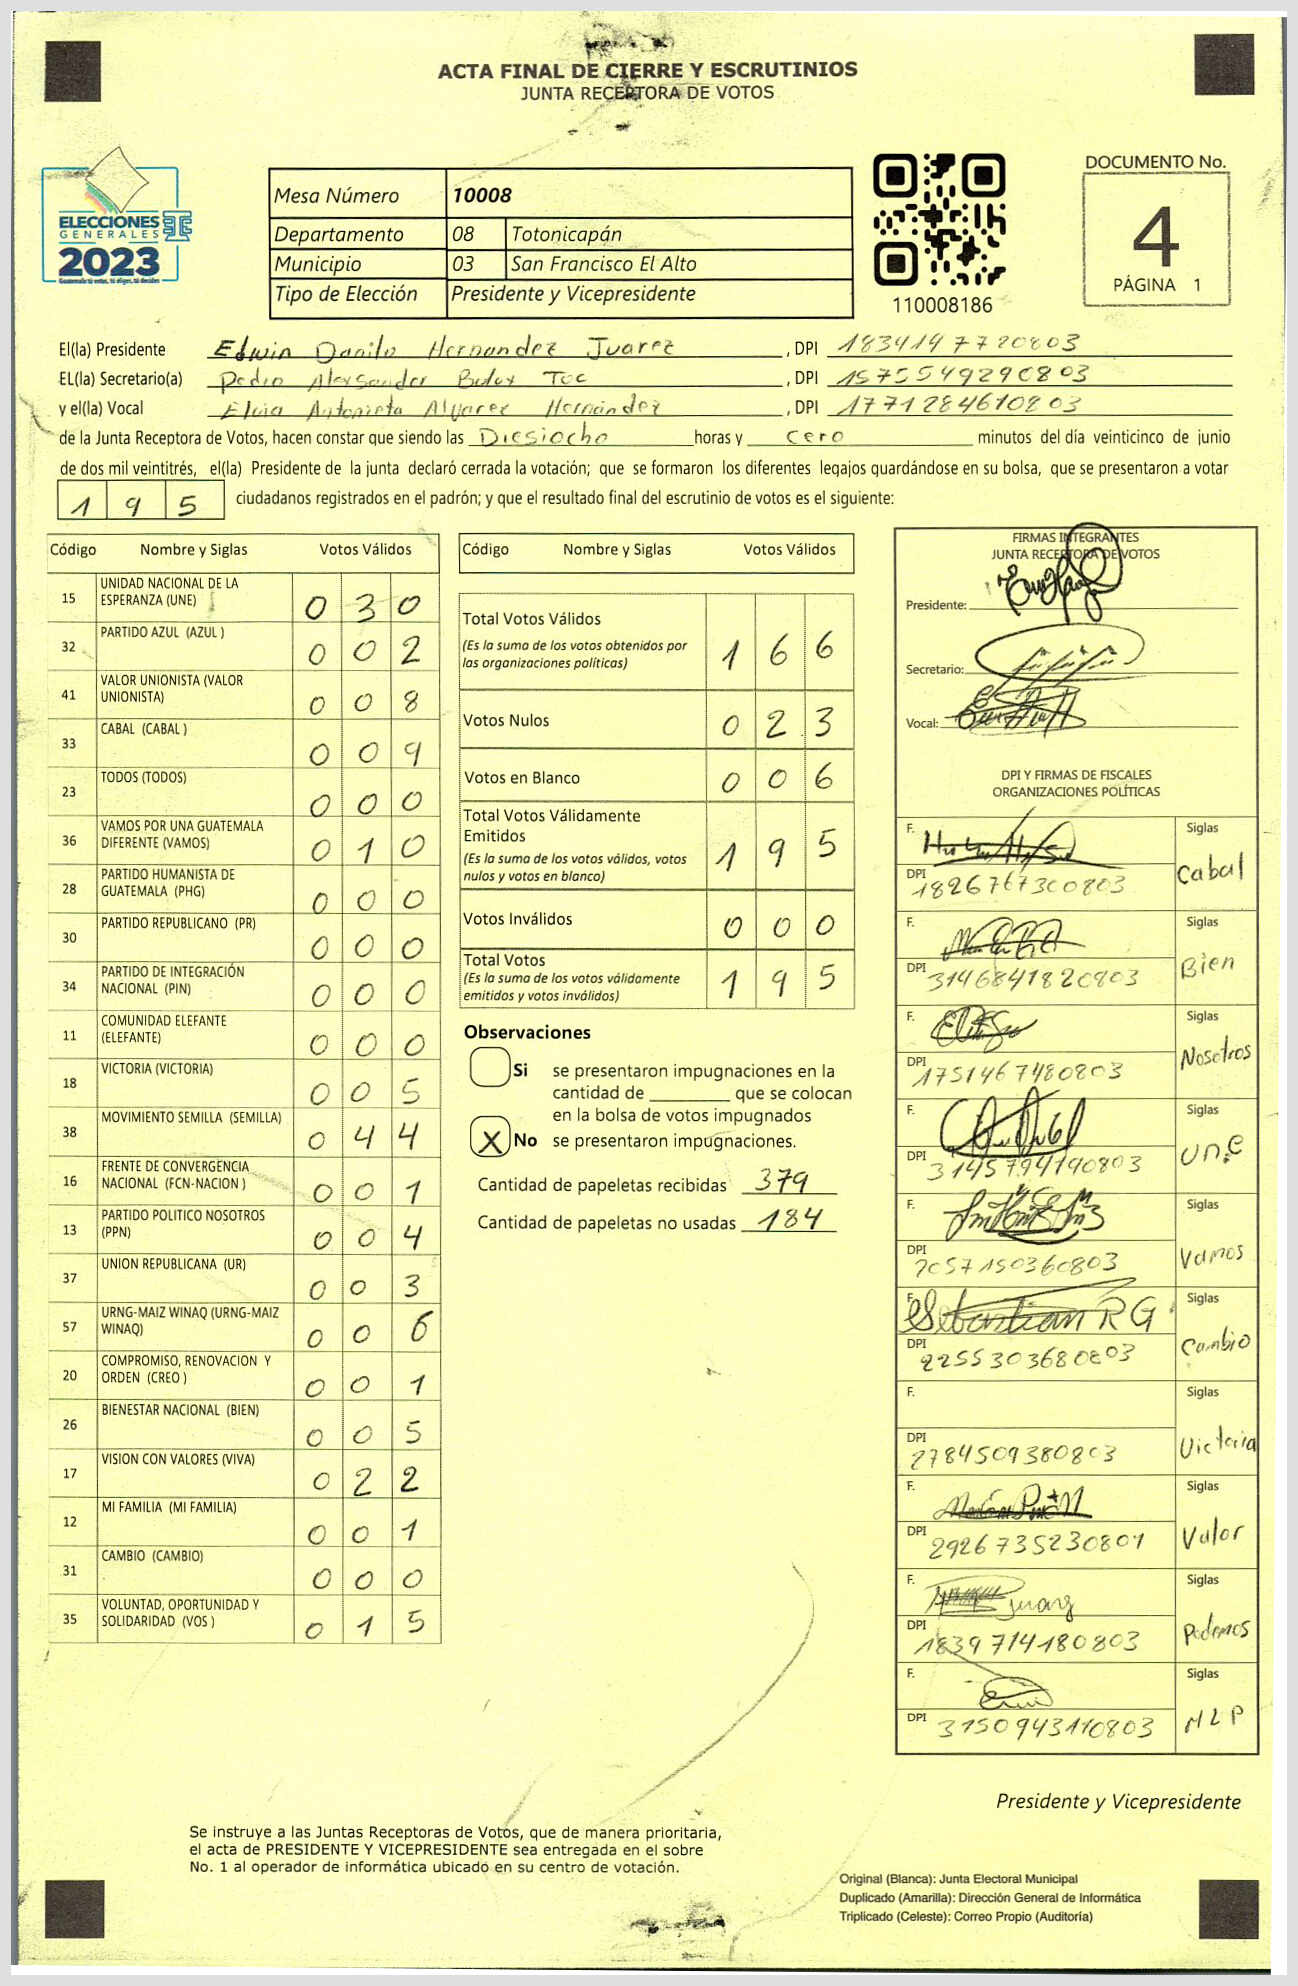 ACTA FINAL DE CIERRE Y ESCRUTINIOS
JUNTA RECEPTORA DE VOTOS
ELECCIONES
GENERALES
2023
Mesa Número 10008
Departamento 08 Totonicapán
Municipio 03 San Francisco El Alto
Tipo de Elección Presidente y Vicepresidente
110008186
DOCUMENTO No.
4
PÁGINA 1
El(la) Presidente Edwin Danilo Hernandez Juarez, DPI 1834147720803
EL(la) Secretario(a) Pedro Alexsander Toc, DPI 1575549290803
y el(la) Vocal Elvia Antonieta Alvarez Hernández, DPI 1771284610803
de la Junta Receptora de Votos, hacen constar que siendo las Diesiocho horas y cero minutos del día veinticinco de junio
de dos mil veintitrés, el(la) Presidente de la junta declaró cerrada la votación; que se formaron los diferentes legajos guardándose en su bolsa, que se presentaron a votar
195 ciudadanos registrados en el padrón; y que el resultado final del escrutinio de votos es el siguiente:
Código Nombre y Siglas Votos Válidos
15 UNIDAD NACIONAL DE LA ESPERANZA (UNE) 030
32 PARTIDO AZUL (AZUL ) 002
41 VALOR UNIONISTA (VALOR UNIONISTA) 008
33 CABAL (CABAL ) 009
23 TODOS (TODOS) 000
36 VAMOS POR UNA GUATEMALA DIFERENTE (VAMOS) 010
28 PARTIDO HUMANISTA DE GUATEMALA (PHG) 000
30 PARTIDO REPUBLICANO (PR) 000
34 PARTIDO DE INTEGRACIÓN NACIONAL (PIN) 000
11 COMUNIDAD ELEFANTE (ELEFANTE) 000
18 VICTORIA (VICTORIA) 005
38 MOVIMIENTO SEMILLA (SEMILLA) 044
16 FRENTE DE CONVERGENCIA NACIONAL (FCN-NACION ) 001
13 PARTIDO POLITICO NOSOTROS (PPN) 004
37 UNION REPUBLICANA (UR) 003
57 URNG-MAIZ WINAQ (URNG-MAIZ WINAQ) 006
20 COMPROMISO, RENOVACION Y ORDEN (CREO ) 001
26 BIENESTAR NACIONAL (BIEN) 005
17 VISION CON VALORES (VIVA) 022
12 MI FAMILIA (MI FAMILIA) 001
31 CAMBIO (CAMBIO) 000
35 VOLUNTAD, OPORTUNIDAD Y SOLIDARIDAD (VOS ) 015
Código Nombre y Siglas Votos Válidos
Total Votos Válidos 166
(Es la suma de los votos obtenidos por
las organizaciones políticas)
Votos Nulos 023
Votos en Blanco 006
Total Votos Válidamente
Emitidos 195
(Es la suma de los votos válidos, votos
nulos y votos en blanco)
Votos Inválidos 000
Total Votos 195
(Es la suma de los votos válidamente
emitidos y votos inválidos)
Observaciones
Si se presentaron impugnaciones en la
cantidad de ________ que se colocan
en la bolsa de votos impugnados
X No se presentaron impugnaciones.
Cantidad de papeletas recibidas 379
Cantidad de papeletas no usadas 184
FIRMAS INTEGRANTES
JUNTA RECEPTORA DE VOTOS
Presidente:
Secretario:
Vocal:
DPI Y FIRMAS DE FISCALES
ORGANIZACIONES POLÍTICAS
F. Siglas
DPI 1826767300803 Cabal
F. Siglas
DPI 3146841820803 Bien
F. Siglas
DPI 1751467480803 Nosotros
F. Siglas
DPI 3145794190803 UNE
F. Siglas
DPI 2057150360803 Vamos
F. Sebastian RG Siglas
DPI 2255303680803 Cambio
F. Siglas
DPI 2784509380803 Victoria
F. Siglas
DPI 2926735230801 Valor
F. Siglas
DPI 1839714180803 Podemos
F. Siglas
DPI 3150943110803 MLP
Presidente y Vicepresidente
Se instruye a las Juntas Receptoras de Votos, que de manera prioritaria,
el acta de PRESIDENTE Y VICEPRESIDENTE sea entregada en el sobre
No. 1 al operador de informática ubicado en su centro de votación.
Original (Blanca): Junta Electoral Municipal
Duplicado (Amarilla): Dirección General de Informática
Triplicado (Celeste): Correo Propio (Auditoría)